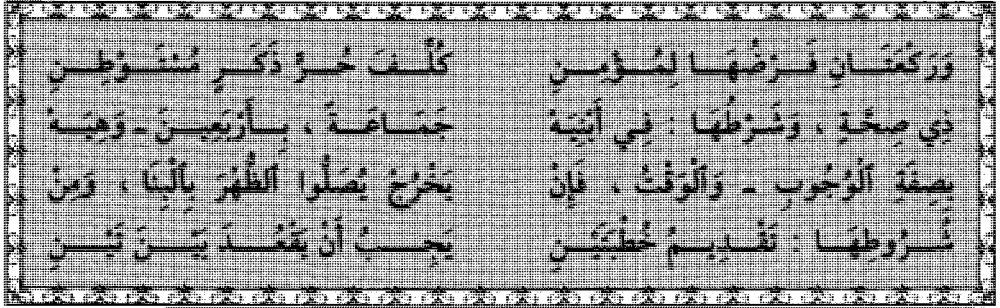 وَرَكْعَتَـانِ فَـرْضُهَـا لِمُـؤْمِـنِ كُلِّـفَ حُـرٍّ ذَكَـرٍ مُسْتَـوْطِـنِ
ذِي صِحَّةٍ ، وَشَرْطُهَا : فِي أَبْنِيَهْ جَمَـاعَـةً ، بِـأَرْبَعِيـنَ ـ وَهِيَـهْ
بِصِفَةِ ٱلْوُجُوبِ ـ وَٱلْوَقْتُ ، فَإِنْ يَخْرُجْ يُصَلُّوا ٱلظُّهْرَ بِٱلْبِنَا ، وَمِنْ
شُـرُوطِهَـا : تَقْـدِيـمُ خُطْبَتَيْـنِ يَجِـبُ أَنْ يَقْعُـدَ بَيْـنَ تَيْـنِ